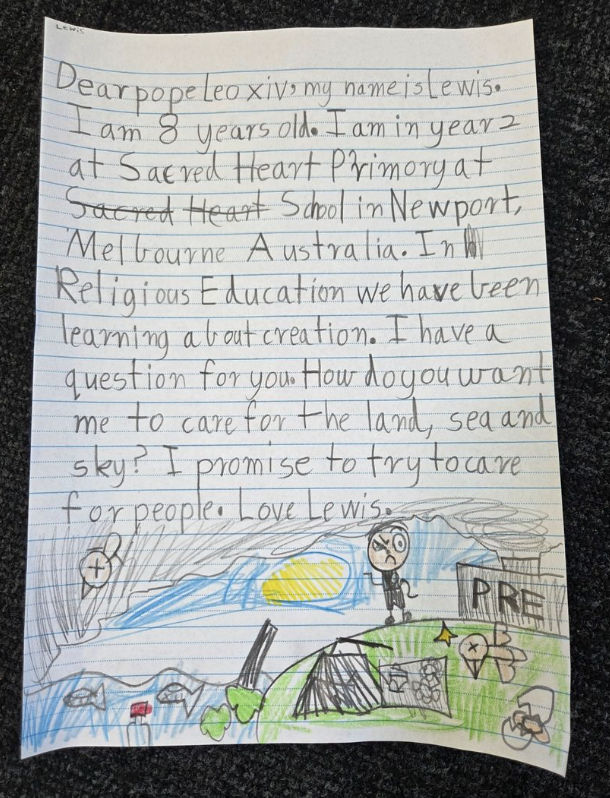 LEWIS
Dear pope Leo xiv, my name is Lewis.
I am 8 years old. I am in year 2
at Sacred Heart Primory at
Sacred Heart School in Newport,
Melbourne Australia. In
Religious Education we have been
learning about creation. I have a
question for you. How do you want
me to care for the land, sea and
sky? I promise to try to care
for people. Love Lewis.
PRE